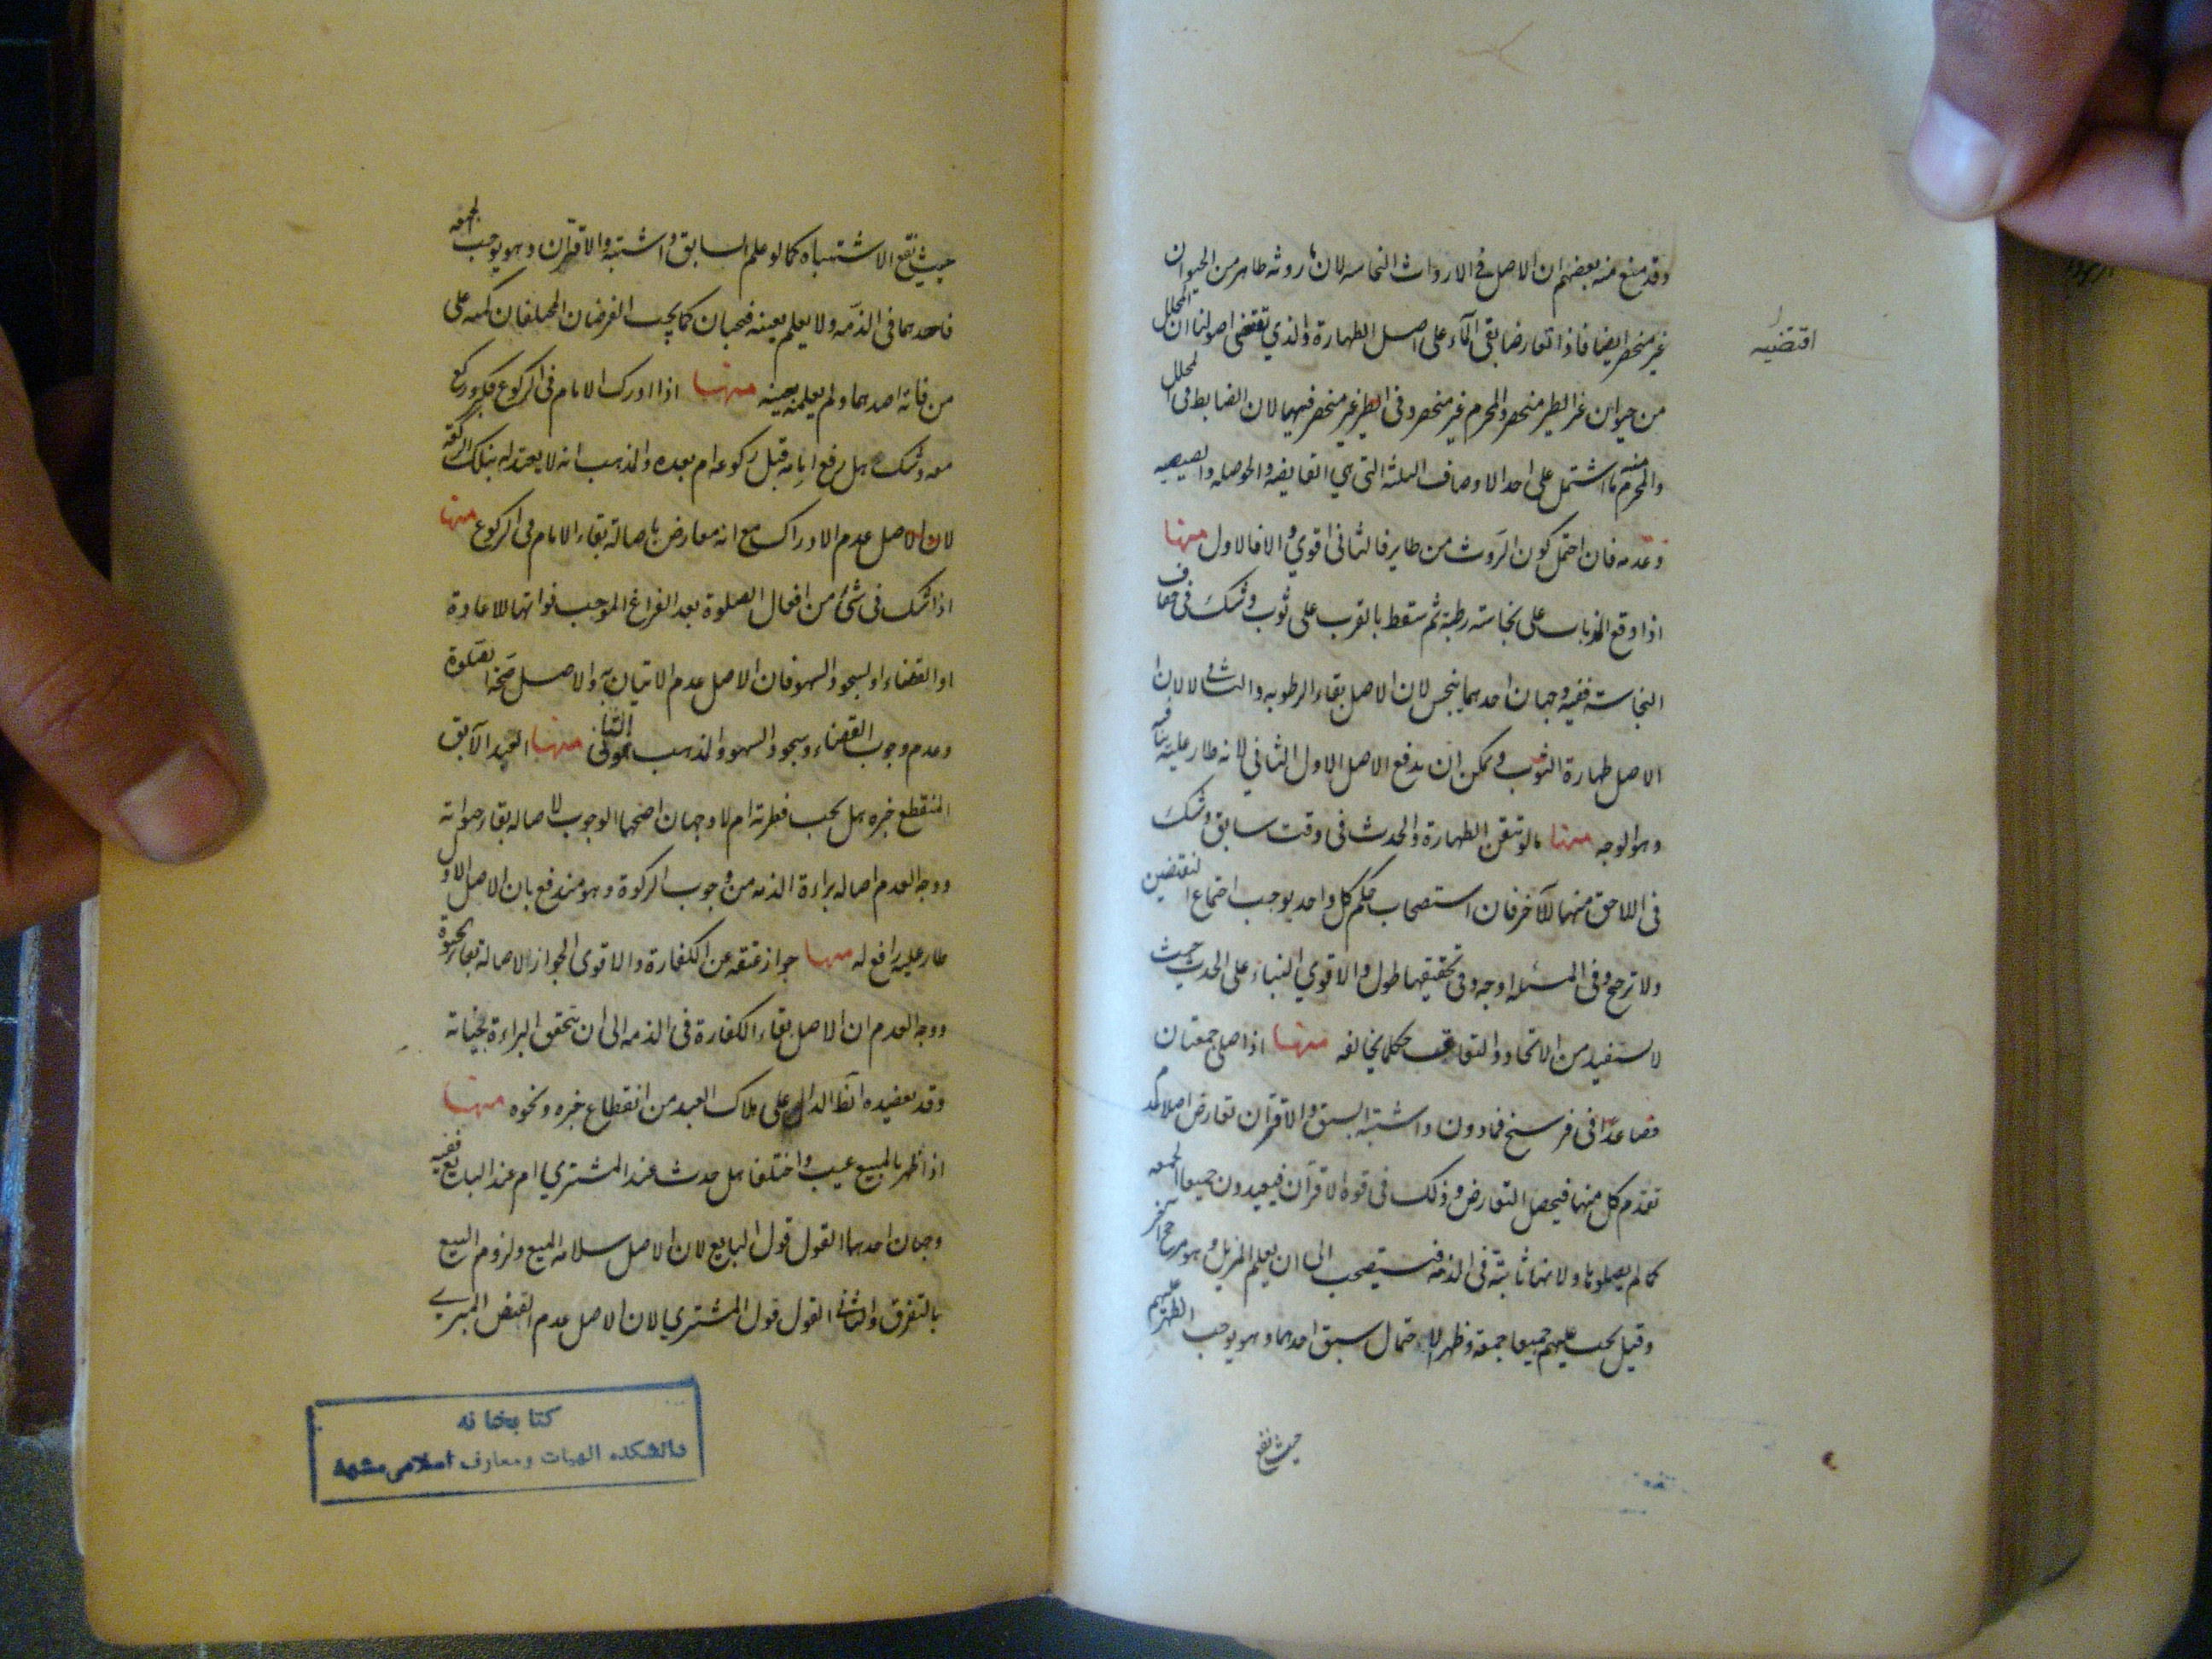 وقد منع منه بعضهم ان الاصل فی الارواث النجاسه لان ما روثه طاهر من الحیوان
غیر منحصر ایضا فاذا تعارضا بقی الماء علی اصل الطهارة والذی تقتضی اصولنا ان المحلل
من حیوان غیر الطیر منحصر والمحرم غیر منحصر وفی الطیر غیر منحصر فیهما لان الضابط فی المحلل
والمحرم منه ما اشتمل علی احد الاوصاف الثلثه التی هی القانصه والحوصله والصیصیه
وعدمه فان احتمل کون الروث من طایر فالثانی اقوی والا فالاول منها
اذا وقع الذباب علی نجاسة رطبة ثم سقط بالقرب علی ثوب وشک فی جفاف
النجاسة ففیه وجهان احدهما ینجس لان الاصل بقاء الرطوبه والثانی لا لان
الاصل طهارة الثوب ویمکن ان یدفع الاصل الاول الثانی لانه طار علیه
وهو الوجه منها ما لو تیقن الطهارة والحدث فی وقت سابق وشک
فی اللاحق منهما للآخر فان استصحاب حکم کل واحد یوجب اجتماع النقیضین
ولا ترجیح وفی المسئله اوجه وفی تحقیقها طول والاقوی البناء علی الحدث حیث
لا یستفید من الاتحاد والتعاقب حکما یخالفه منها اذا صلی جمعتان
فصاعدا فی فرسخ فمادون واشتبه السبق والاقتران تعارض اصلا عدم
تقدم کل منهما فیحصل التعارض وذلک فی قوة الاقتران فیعیدون جمیعا الجمعه
کما لم یصلوها ولانها ثابتة فی الذمه فیستصحب الی ان یعلم المزیل وهو مرجح آخر
وقیل یجب علیهم جمیعا جمعة وظهر لاحتمال سبق احدهما وهو یوجب الظهر علیهم
حیث یقع
اقتضیه
حیث یقع الاشتباه کما لو علم السابق واشتبه والاقتران وهو یوجب الجمعه
فاحدهما فی الذمه ولا یعلم بعینه فیجبان کما یجب الفرضان المختلفان کمیه علی
من فاته احدهما ولم یعلمه بعینه منها اذا ادرک الامام فی الرکوع فکبر ورکع
معه وشک هل رفع امامه قبل رکوعه ام بعده والمذهب انه لا یعتد له بتلک الرکعة
لان الاصل عدم الادراک مع انه معارض باصالة بقاء الامام فی الرکوع منها
اذا شک فی شیء من افعال الصلوة بعد الفراغ الموجب فواتها للاعادة
او القضاء او لسجود السهو فان الاصل عدم الاتیان به والاصل صحة الصلوة
وعدم وجوب القضاء وسجود السهو والمذهب الثانی منها العبد الآبق
المنقطع خبره هل یجب فطرته ام لا وجهان اصحهما الوجوب لاصاله بقاء حیوته
ووجه العدم اصاله براءة الذمه من وجوب الزکوة وهو مندفع بان الاصل الاول
طار علیه رافع له منها جواز عتقه عن الکفارة والاقوی الجواز لاصالة بقاء الحیوة
ووجه العدم ان الاصل بقاء الکفارة فی الذمه الی ان یتحقق البراءة بحیاته
وقد یعضده الظاهر الدال علی هلاک العبد من انقطاع خبره ونحوه منها
اذا ظهر بالمبیع عیب واختلفا هل حدث عند المشتری ام عند البایع ففیه
وجهان احدهما القول قول البایع لان الاصل سلامه المبیع ولزوم البیع
بالتفرق والثانی القول قول المشتری لان الاصل عدم القبض المبرء
کتابخانه
دانشکده الهیات ومعارف اسلامی مشهد